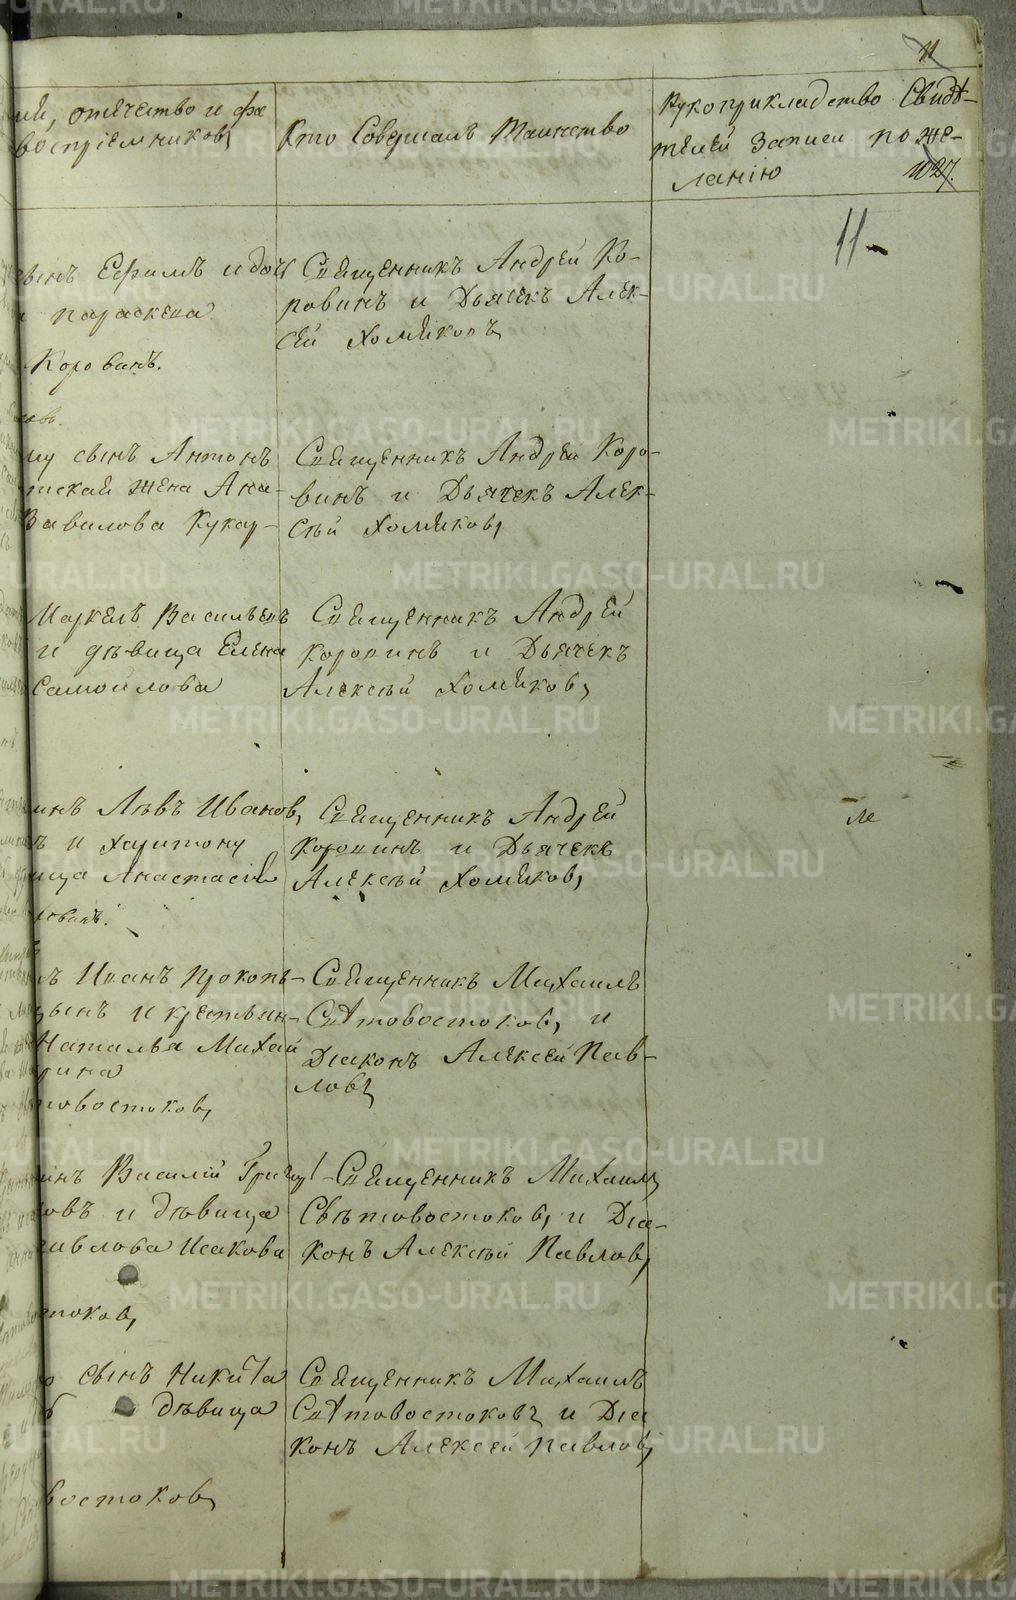 11
ній, отчество и фа
воспріемниковъ
Кто Совершалъ Таинство
Рукоприкладство Свидѣ-
телей Записи по же-
ланію
1027.
11-
сынъ Ефимъ и доч
параскева
Коровинъ.
Священникъ Андрей Ко-
ровинъ и Дьячекъ Алек-
сей Хомяковъ
му сынъ Антонъ
жена Ана-
Вавилова Кукар-
Священникъ Андрей Коро-
винъ и Дьячекъ Алек-
сѣй Хомяковъ
Маркелъ Васильевъ
и дѣвица Елена
Самойлова
Священникъ Андрей
Коровинъ и Дьячекъ
Алексѣй Хомяковъ
инъ Львъ Ивановъ
ъ и Харитону
ица Анастасія
ловинъ.
Священникъ Андрей
Коровинъ и Дьячекъ
Алексѣй Хомяковъ
ле
ъ Иванъ Прокопь-
цынъ и крестьян-
Наталья Михай
рина
товостоковъ
Священникъ Михаилъ
Свѣтовостоковъ и
Діаконъ Алексей Пав-
ловъ
инъ Василій Григор
ковъ и дѣвица
авлова Исакова
стоковъ
Священникъ Михаилъ
Свѣтовостоковъ и Діа-
конъ Алексѣй Павловъ
о сынъ Никита
дѣвица
востоковъ
Священникъ Михаилъ
Свѣтовостоковъ и Діа
конъ Алексей Павловъ
METRIKI.GASO-URAL.RU